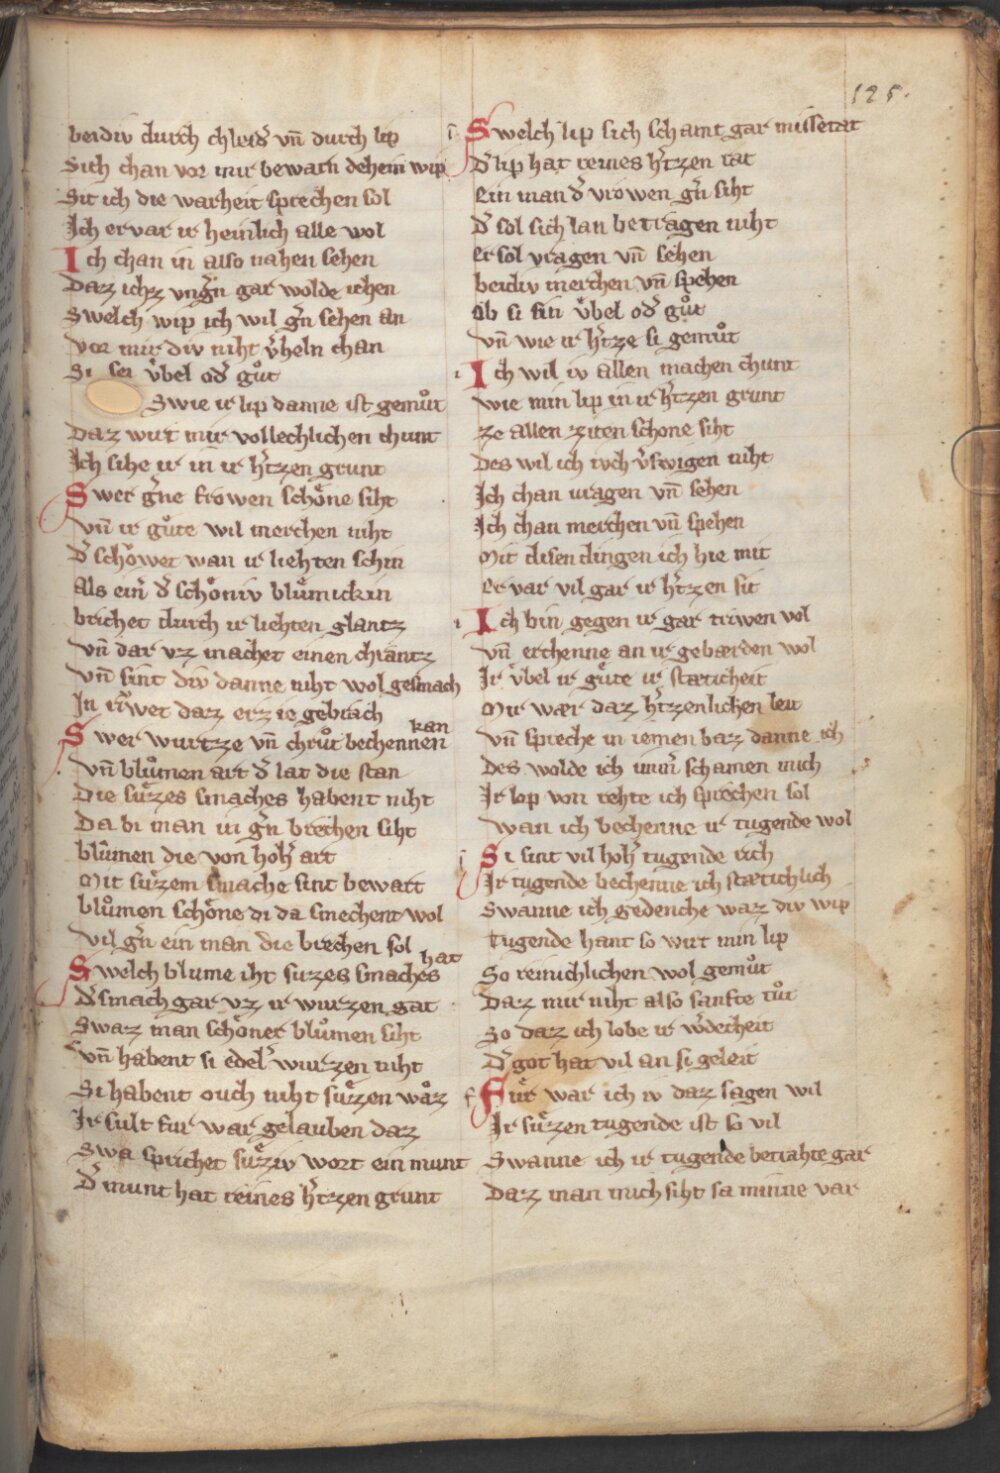 125.
beidiv durch chleid̄ vn̄ durch lip
Sich chan vor mir bewarn dehein wip
Sit ich die warheit sprechen sol
Ich ervar ir heinlich alle wol
Ich chan in also nahen sehen
Daz ichz vngn̄ gar wolde iehen
Swelch wip ich wil gn̄ sehen an
Vor mir div niht v̄heln chan
Si sei vͤbel od̄ gůt
Swie ir lip danne ist gemůt
Daz wirt mir vollechlichen chunt
Ich sihe ir in ir h̄tzen grunt
Swer ḡne frowen schoͤne siht
Vn̄ ir guͤte wil merchen niht
D̄ schowet wan ir liehten schin
Als ein̄ d̄ schoͤniv bluͤmickin
brichet durch ir liehten glantz
Vn̄ dar vz machet einen chrantz
Vn̄ sint div danne niht wol gesmach
In rͮwet daz erz ie gebrach
Swer wurtze vn̄ chrůt bechennen kan
Vn̄ blůmen art d̄ lat die stan
Die suͤzes smaches habent niht
Da bi man in gn̄ brechen siht
blůmen die von hoh̄ art
Mit suͤzem smache sint bewart
blůmen schoͤne di da smechent wol
Vil gn̄ ein man die brechen sol
Swelch blume iht suzes smaches hat
D̄ smach gar vz ir wurzen gat
Swaz man schoͤner blůmen siht
Vn̄ habent si edel̄ wurzen niht
Si habent ouch niht suͤzzen wåz
Ir sult fur war gelauben daz
Swa sprichet suͤziv wort ein munt
D̄ munt hat reines h̄tzen grunt
Swelch lip sich schamt gar missetat
D̄ lip hat reines h̄tzen rat
Ein man d̄ vrowen gn̄ siht
D̄ sol sich lan betragen niht
Er sol vragen vn̄ sehen
beidiv merchen vn̄ spehen
Ob si sin vͤbel od̄ gůt
Vn̄ wie ir h̄tze si gemůt
Ich wil iv allen machen chunt
Wie min lip in ir h̄tzen grunt
Ze allen ziten schone siht
Des wil ich ivch v̄swigen niht
Ich chan vragen vn̄ sehen
Ich chan merchen vn̄ spehen
Mit disen dingen ich hie mit
Ervar vil gar ir h̄tzen sit
Ich bin gegen ir gar triwen vol
Vn̄ erchenne an ir gebærden wol
Ir vͤbel ir guͤte ir stæticheit
Mir wær daz h̄tzenlichen leit
Vn̄ spreche in iemen baz danne ich
Des wolde ich im̄ schamen mich
Ir lop von rehte ich sprechen sol
Wan ich bechenne ir tugende wol
Si sint vil hoh̄ tugende rich
Ir tugende bechenne ich stætichlich
Swanne ich gedenche waz div wip
Tugende hant so wirt min lip
So reinichlichen wol gemůt
Daz mir niht also sanfte tůt
So daz ich lobe ir w̄decheit
D̄ got hat vil an si geleit
Fuͤr war ich iv daz sagen wil
Ir suͤzzen tugende ist so vil
Swanne ich ir tugende betrahte gar
Daz man mich siht sa minne var